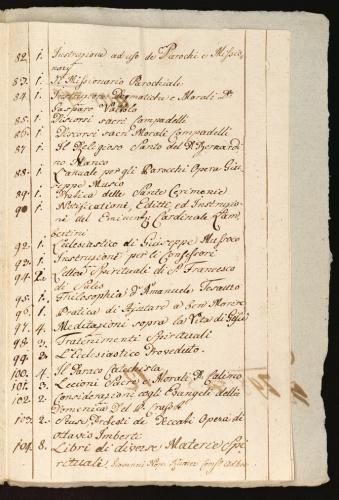 82. 1. Instruzione ad uso de Parochi e Missio-
narj
83. 1. Il Missionario Parochiale
84. 1. Instruzioni Dogmatiche e Morali D.
Gasparo
85. 1. Discorsi sacri Campadelli
86. 1. Discorsi sacri Morali Campadelli
87. 1. Il Religioso Santo del P. Bernardi-
no Manco
88. 1. Manuale per gli Parocchi Opera Giu-
seppe Musio
89. 1. Pratica delle Sante Cerimonie
90. 1. Notificationi, Editti, ed Instruzio-
ni del Eminent. Cardinale Lam-
bertini
92. 1. L'Eclesiastico di Giuseppe
93. 1. Instruzioni per li Confessori
94. 2. Lettere Spirituali di S. Francesco
di Sales
95. 1. Philosophia d'Amanuele Tesauro
96. 1. Pratica di Ajutare a ben Morire
97. 4. Meditazioni sopra la Vita di Giesù
98. 3. Trattenimenti Spirituali
99. 2. L'Eclesiastico Proveduto
100. 4. Il Paroco Catechista
101. 3. Lecioni Sacre, e Morali P. Calino
102. 2. Considerazioni cogli Evangeli della
Domenica Del P.
103. 2. de Peccati Opera di
Ottavio Imberti
104. 8. Libri di diverse Materie Spi-
rituali, Giovanni